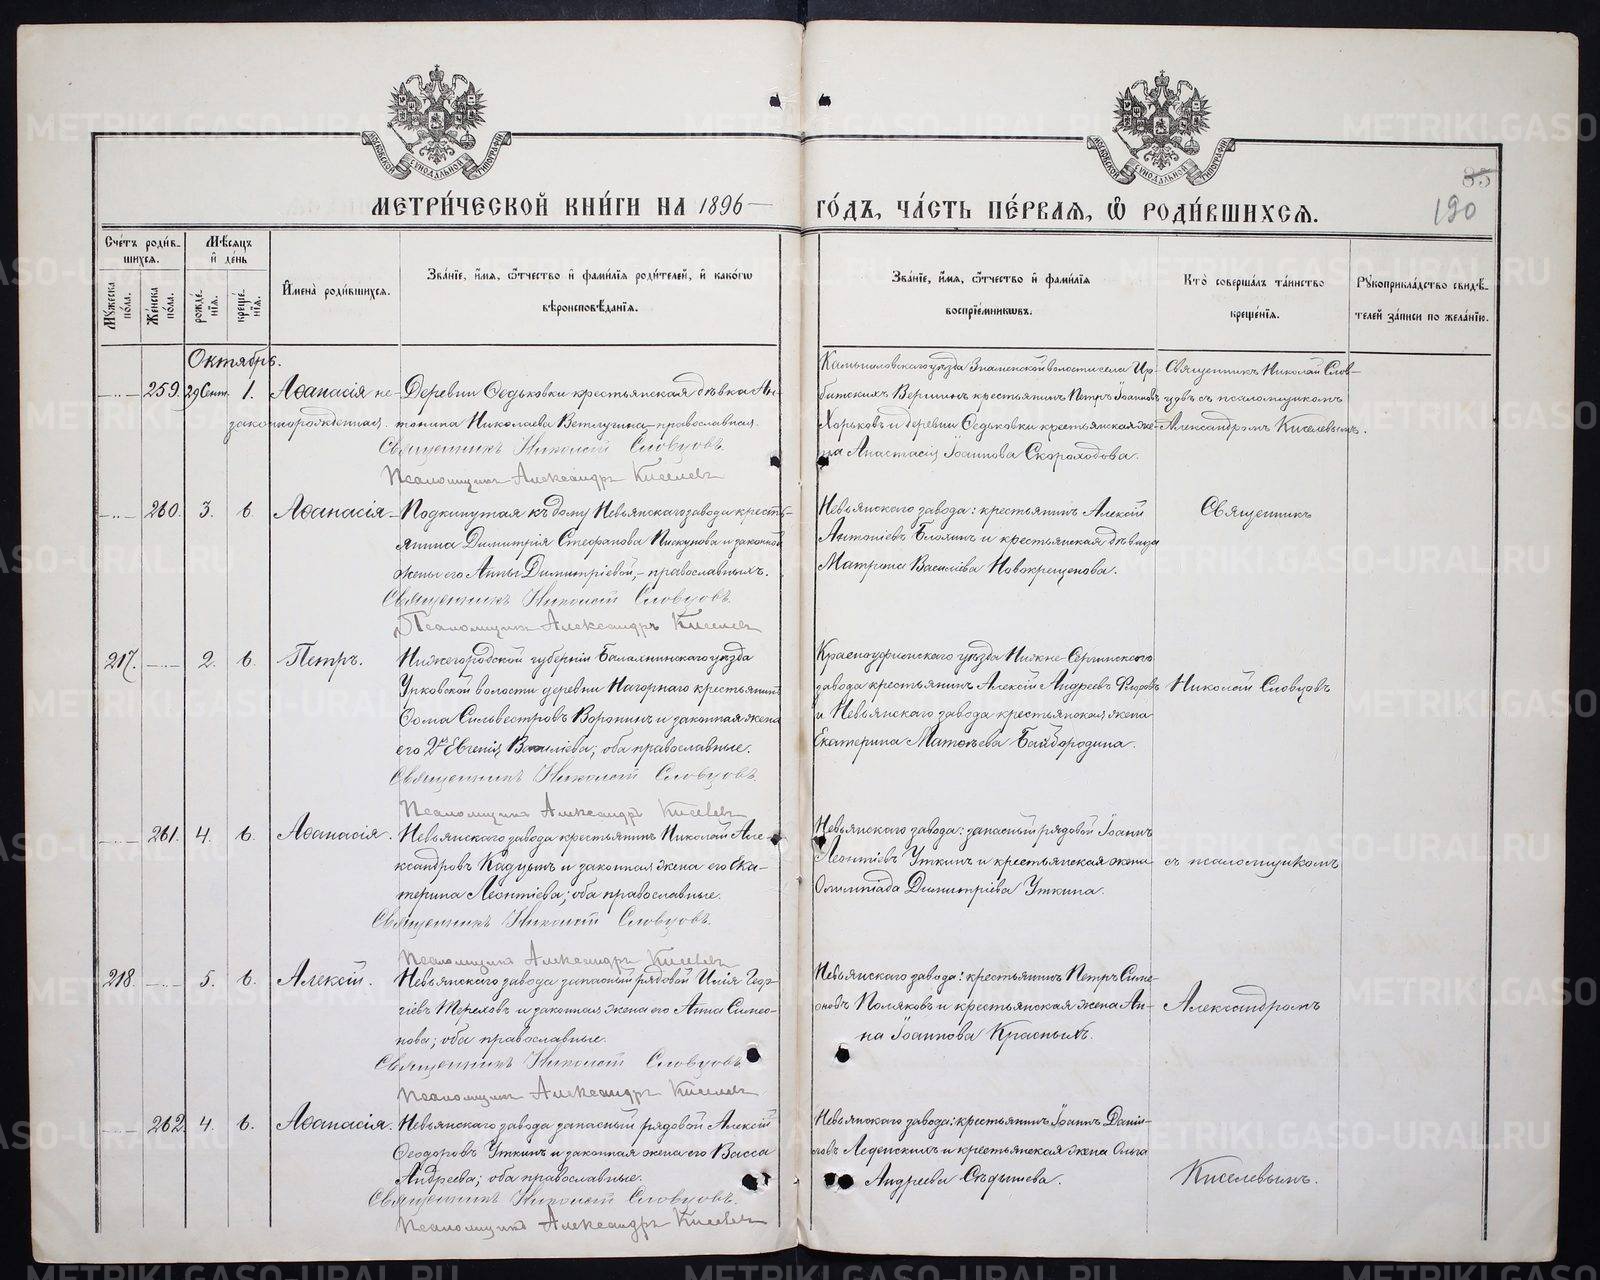 МЕТРИ́ЧЕСКОЙ КНИ́ГИ НА 1896 ГО́ДЪ, ЧА́СТЬ ПЕ́РВАЯ, Ѽ РОДИ́ВШИХСЯ.
85
190
Сче́тъ роди́в-
шихся.
Му́жеска по́ла.
Же́нска по́ла.
Мѣ́сяцъ
и҆ де́нь
рожде́-
нїя.
креще́-
нїя.
И҆мена̀ роди́вшихся.
Зва́нїе, и҆́мя, ѻ҆́тчество и҆ фами́лїя роди́телей, и҆ како́гѡ
вѣроисповѣ́данїя.
Зва́нїе, и҆́мя, ѻ҆́тчество и҆ фами́лїя
воспрїе́мниковъ.
Кто̀ соверша́лъ та́инство
креще́нїя.
Рꙋкоприкла́дство свидѣ́-
телей за́писи по жела́нїю.
Октябрь.
259. 29 Сент. 1. Аѳанасія не-
законнорожденная.
Деревни Ѳедьковки крестьянская дѣвка Ан-
тонина Николаева Ветлугина, православная.
Священникъ Николай Словцовъ.
Псаломщикъ Александръ Киселевъ
Камышловскаго уѣзда Знаменской волости села Ир-
битскихъ Вершинъ крестьянинъ Петръ Іоанновъ
Хорьковъ и деревни Ѳедьковки крестьянская же-
на Анастасія Іоаннова Скороходова.
Священникъ Николай Слов-
цовъ съ псаломщикомъ
Александромъ Киселевымъ.
260. 3. 6. Аѳанасія.
Подкинутая къ дому Невьянскаго завода кресть-
янина Димитрія Стефанова Пискунова и законной
жены его Анны Димитріевой, православныхъ.
Священникъ Николай Словцовъ.
Псаломщикъ Александръ Киселевъ
Невьянскаго завода: крестьянинъ Алексій
Антоніевъ и крестьянская дѣвица
Матрона Василіева Новокрещенова.
Священникъ
217. 2. 6. Петръ.
Нижегородской губерніи Балахнинскаго уѣзда
волости деревни Нагорнаго крестьянинъ
Ѳома Сильвестровъ Воронинъ и законная жена
его Евгенія Василіева; оба православные.
Священникъ Николай Словцовъ
Псаломщикъ Александръ Киселевъ
Красноуфимскаго уѣзда Нижне-Сергинскаго
завода крестьянинъ Алексій Андреевъ
и Невьянскаго завода крестьянская жена
Екатерина Матѳеева Байбородина.
Николай Словцовъ
261. 4. 6. Аѳанасія.
Невьянскаго завода крестьянинъ Николай Але-
ксандровъ и законная жена его Ека-
терина Леонтіева; оба православные.
Священникъ Николай Словцовъ.
Псаломщикъ Александръ Киселевъ
Невьянскаго завода: запасный рядовой Іоаннъ
Леонтіевъ Уткинъ и крестьянская жена
Олимпіада Димитріева Уткина.
съ псаломщикомъ
218. 5. 6. Алексій.
Невьянскаго завода запасный рядовой Илія Геор-
гіевъ Тереховъ и законная жена его Анна Симео-
нова; оба православные.
Священникъ Николай Словцовъ
Псаломщикъ Александръ Киселевъ
Невьянскаго завода: крестьянинъ Петръ Симе-
оновъ Поляковъ и крестьянская жена Ан-
на Іоаннова Красныхъ.
Александромъ
262. 4. 6. Аѳанасія.
Невьянскаго завода запасный рядовой Алексій
Ѳеодоровъ Уткинъ и законная жена его Васса
Андреева; оба православные.
Священникъ Николай Словцовъ.
Псаломщикъ Александръ Киселевъ
Невьянскаго завода: крестьянинъ Іоаннъ Даніи-
ловъ и крестьянская жена Ольга
Андреева Сѣдышева.
Киселевымъ.
METRIKI.GASO-URAL.RU